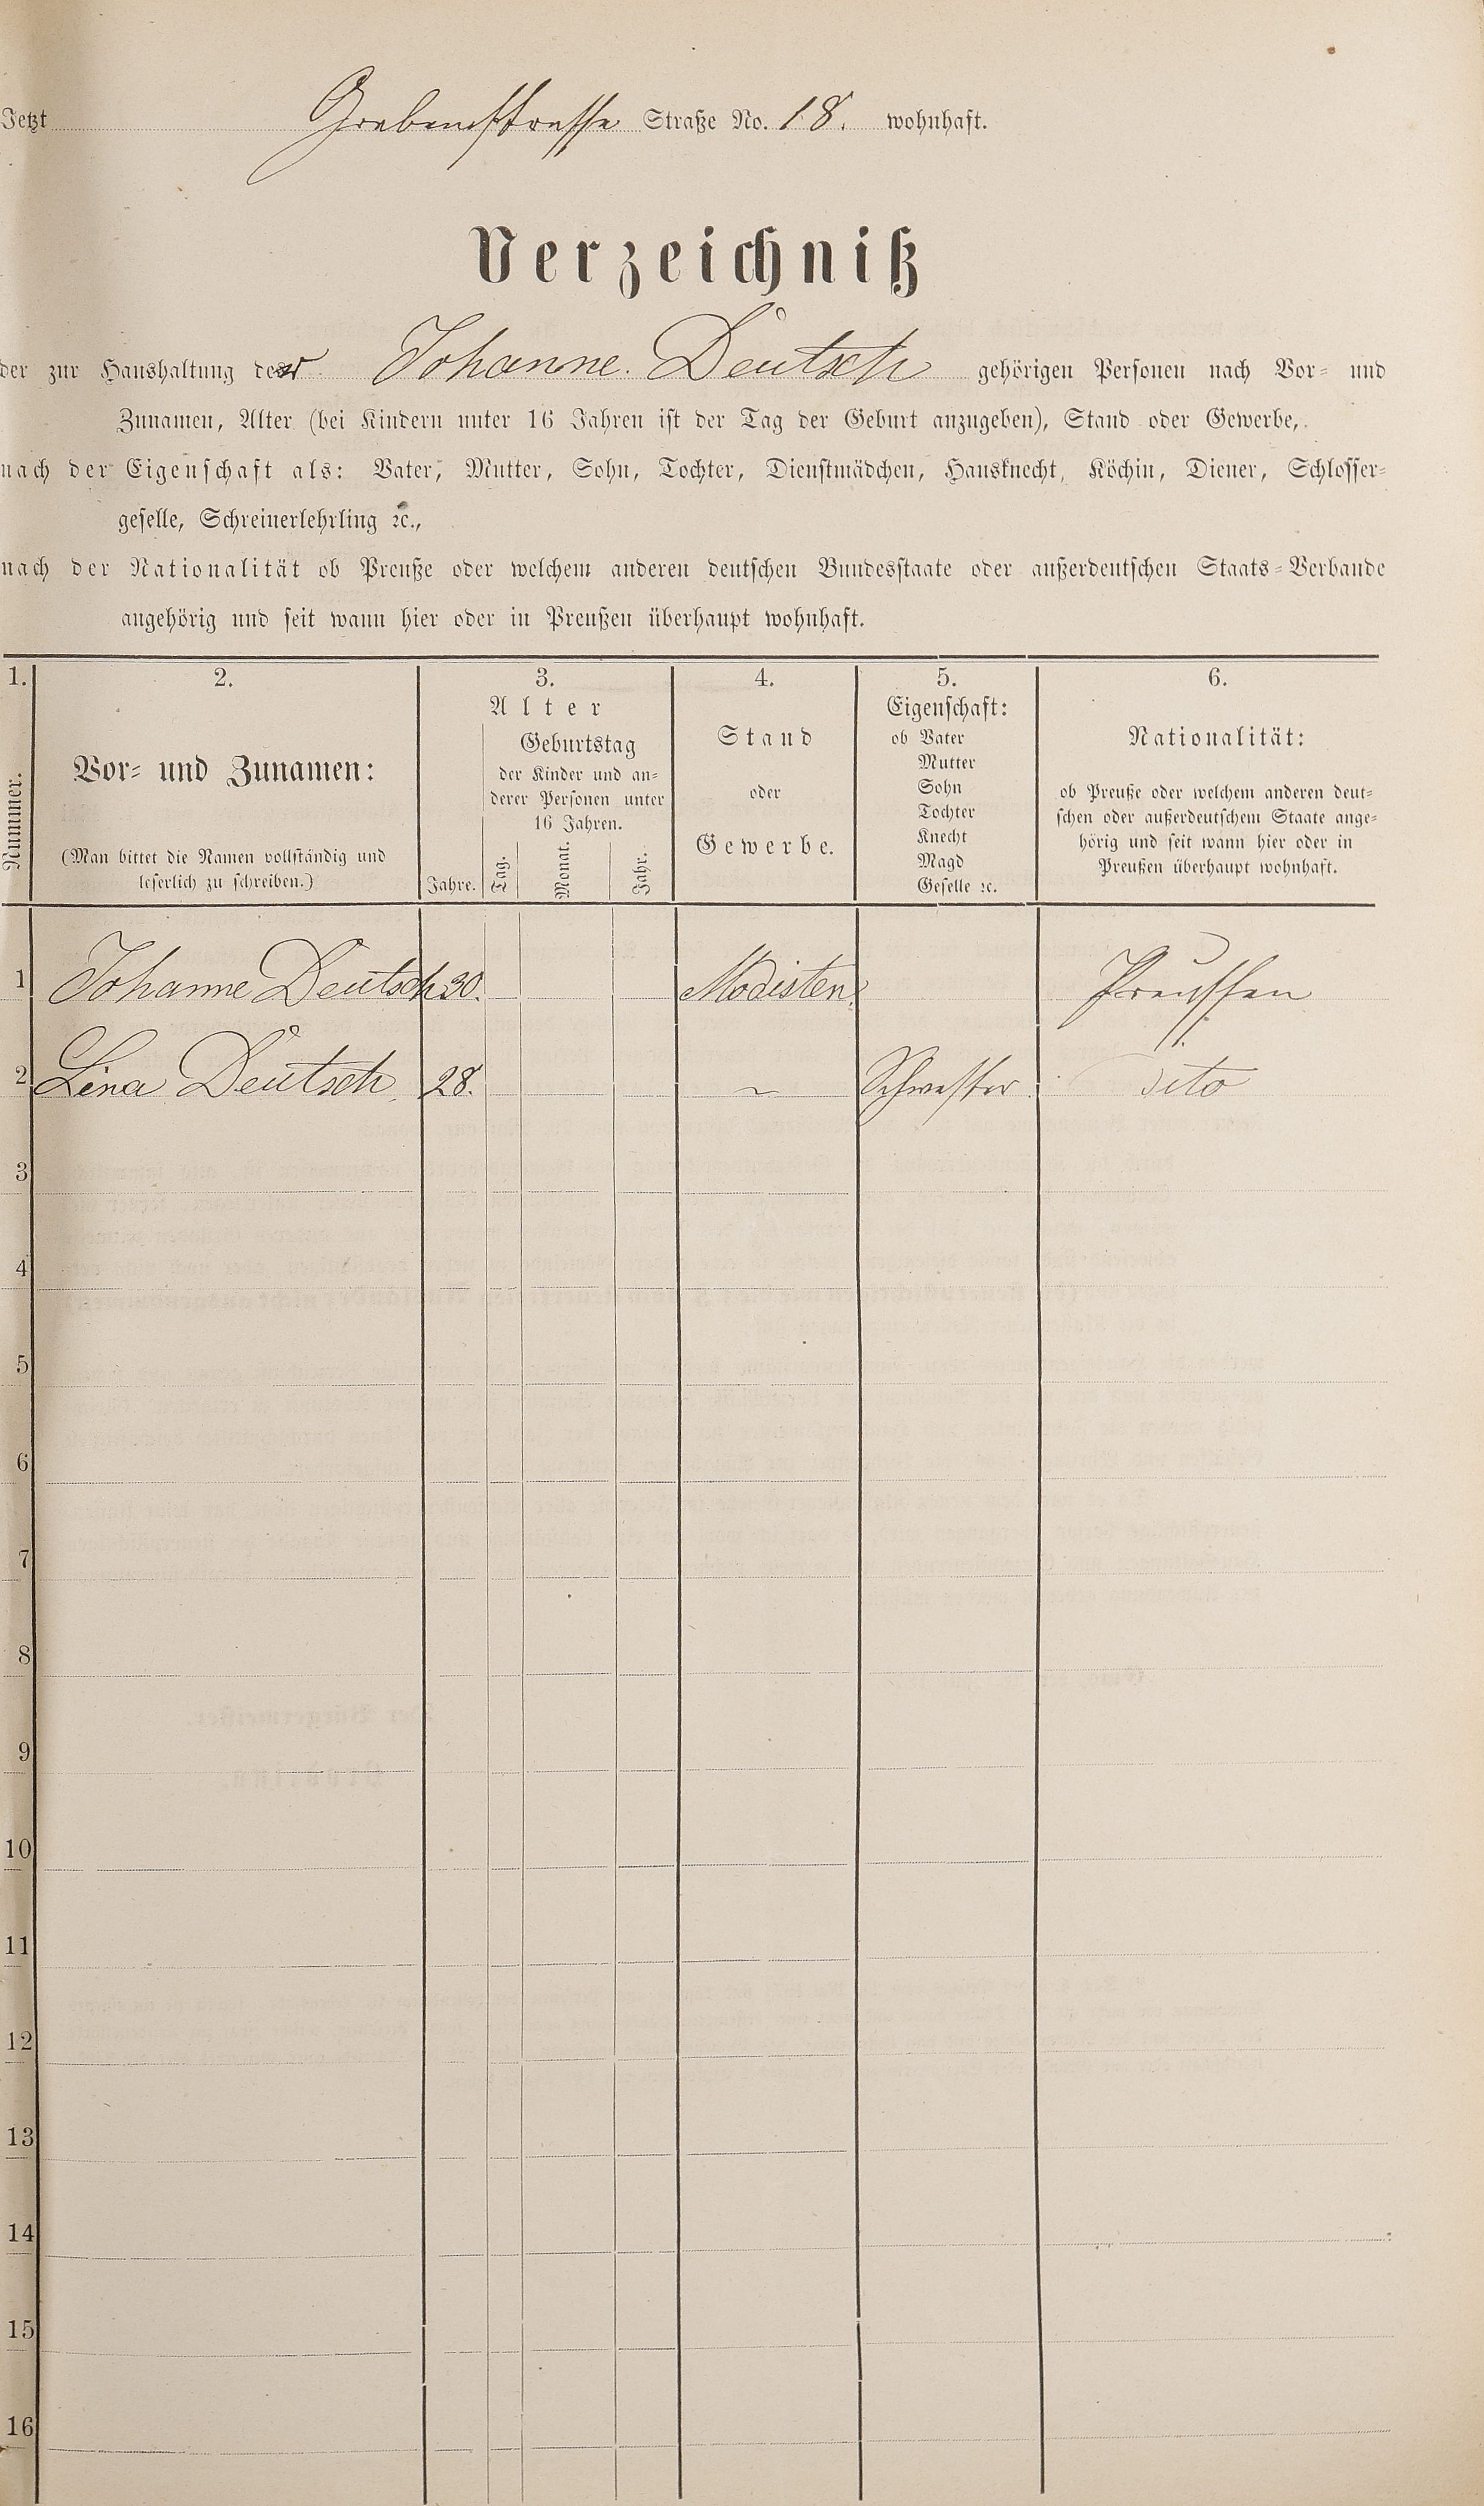 Jetzt Grabenstrasse Straße No. 18. wohnhaft.
Verzeichniß
der zur Haushaltung der Johanne. Deutsch gehörigen Personen nach Vor- und
Zunamen, Alter (bei Kindern unter 16 Jahren ist der Tag der Geburt anzugeben), Stand oder Gewerbe,
nach der Eigenschaft als: Vater, Mutter, Sohn, Tochter, Dienstmädchen, Hausknecht, Köchin, Diener, Schlosser-
geselle, Schreinerlehrling ꝛc.,
nach der Nationalität ob Preuße oder welchem anderen deutschen Bundesstaate oder außerdeutschen Staats-Verbande
angehörig und seit wann hier oder in Preußen überhaupt wohnhaft.
1. 2. 3. 4. 5. 6.
Nummer.
Vor- und Zunamen:
(Man bittet die Namen vollständig und
leserlich zu schreiben.)
Alter
Jahre.
Geburtstag
der Kinder und an-
derer Personen unter
16 Jahren.
Tag. Monat. Jahr.
Stand
oder
Gewerbe.
Eigenschaft:
ob Vater
Mutter
Sohn
Tochter
Knecht
Magd
Geselle ꝛc.
Nationalität:
ob Preuße oder welchem anderen deut-
schen oder außerdeutschem Staate ange-
hörig und seit wann hier oder in
Preußen überhaupt wohnhaft.
1 Johanne Deutsch 30. Modisten Preussen
2 Lina Deutsch. 28. ~ Schwester dito
3
4
5
6
7
8
9
10
11
12
13
14
15
16